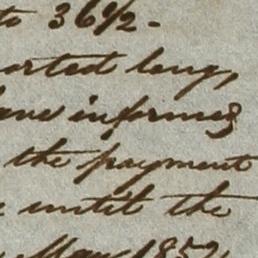 to 36 1/2 -
orted leng,
ave informed
the payment
until the
May 1852